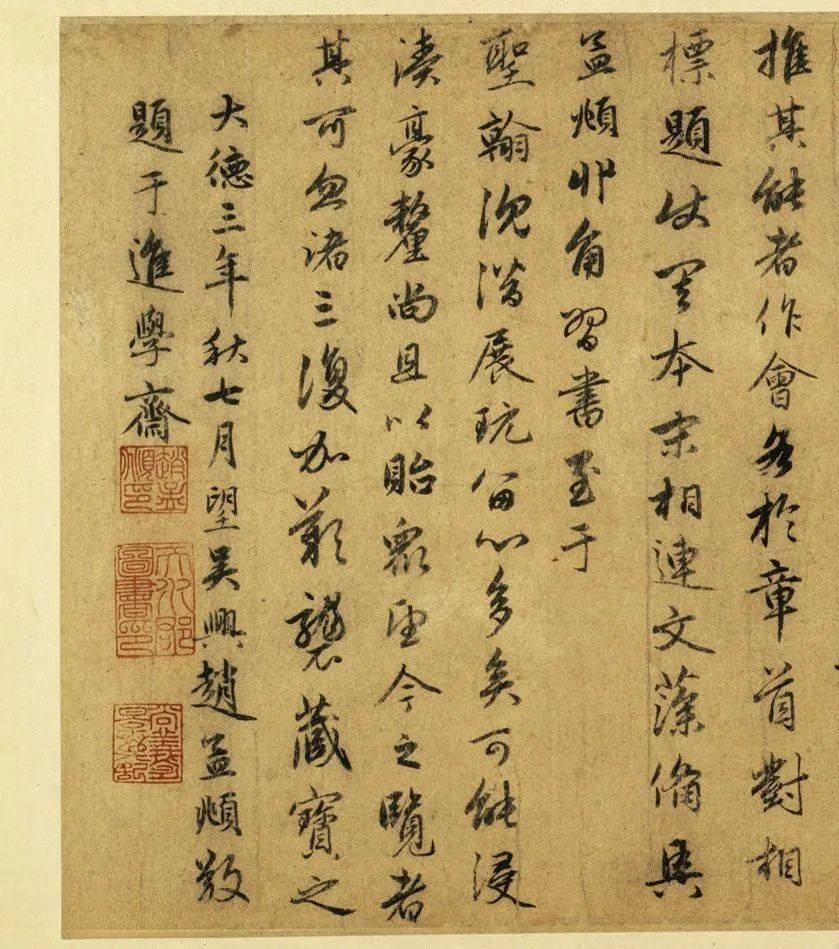 推其能者作會各於章首對相
標題本末相連文藻備具
孟頫丱角習書至于
聖翰沈潛展玩留心多矣可能浸
湊豪釐尚且以貽衆今之覽者
其可忽諸三復加歎襲藏寶之
大德三年秋七月望吳興趙孟頫敬
題于進學齋
趙孟頫印
天水郡圖書印